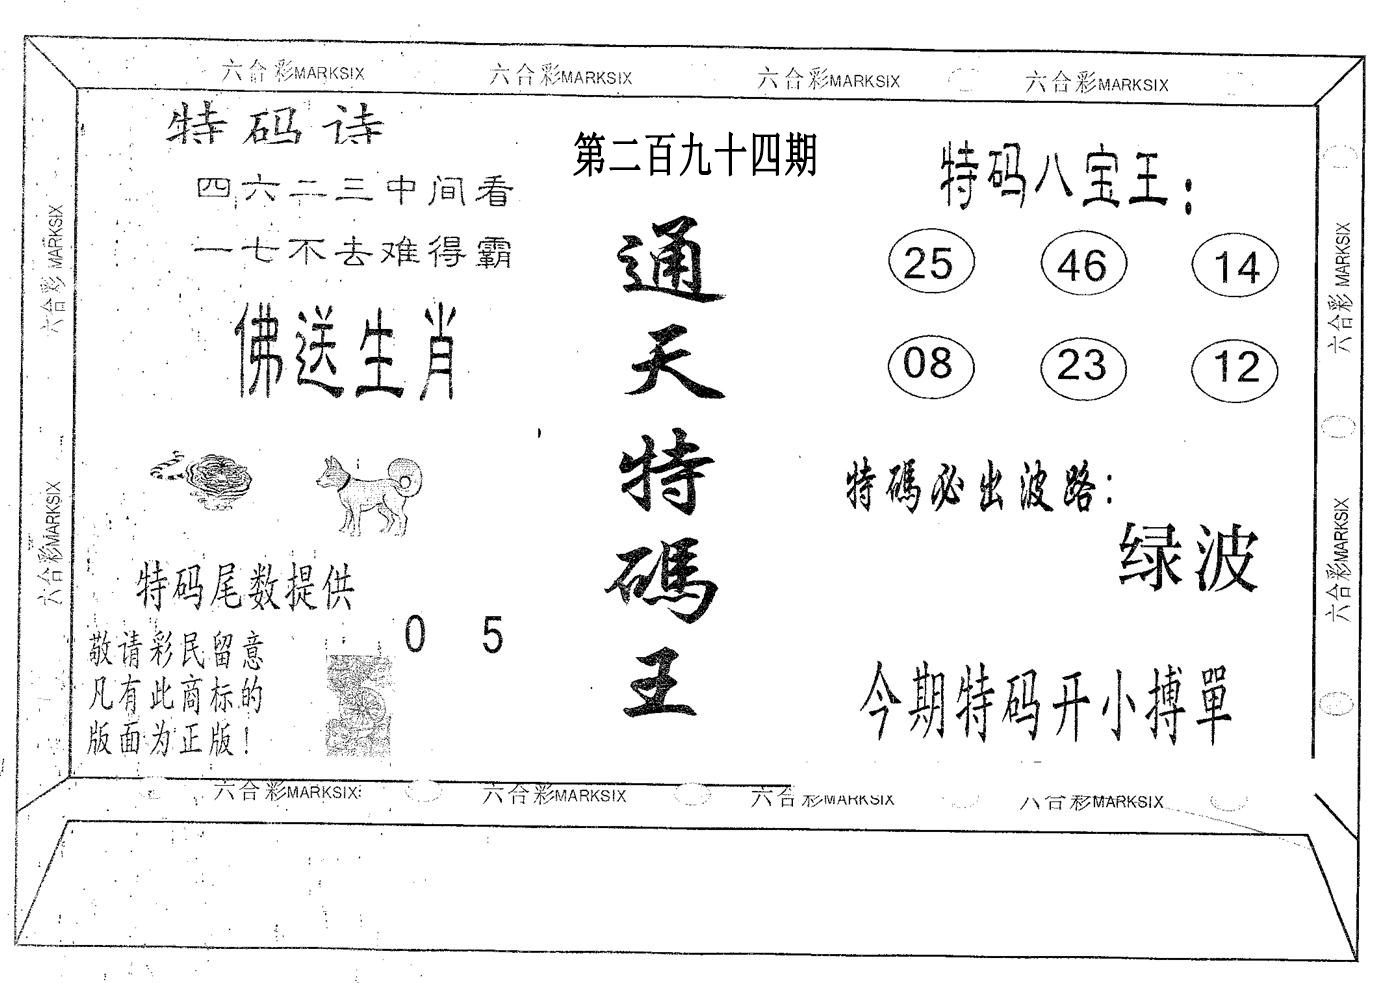 六合彩MARKSIX 六合彩MARKSIX 六合彩MARKSIX 六合彩MARKSIX
特码诗
四六二三中间看
一七不去难得霸
佛送生肖
特码尾数提供
0 5
敬请彩民留意
凡有此商标的
版面为正版!
第二百九十四期
通天特碼王
特码八宝王:
25 46 14
08 23 12
特碼必出波路:
绿波
今期特码开小搏單
六合彩MARKSIX
六合彩MARKSIX
六合彩MARKSIX
六合彩MARKSIX
六合彩MARKSIX 六合彩MARKSIX 六合彩MARKSIX 六合彩MARKSIX